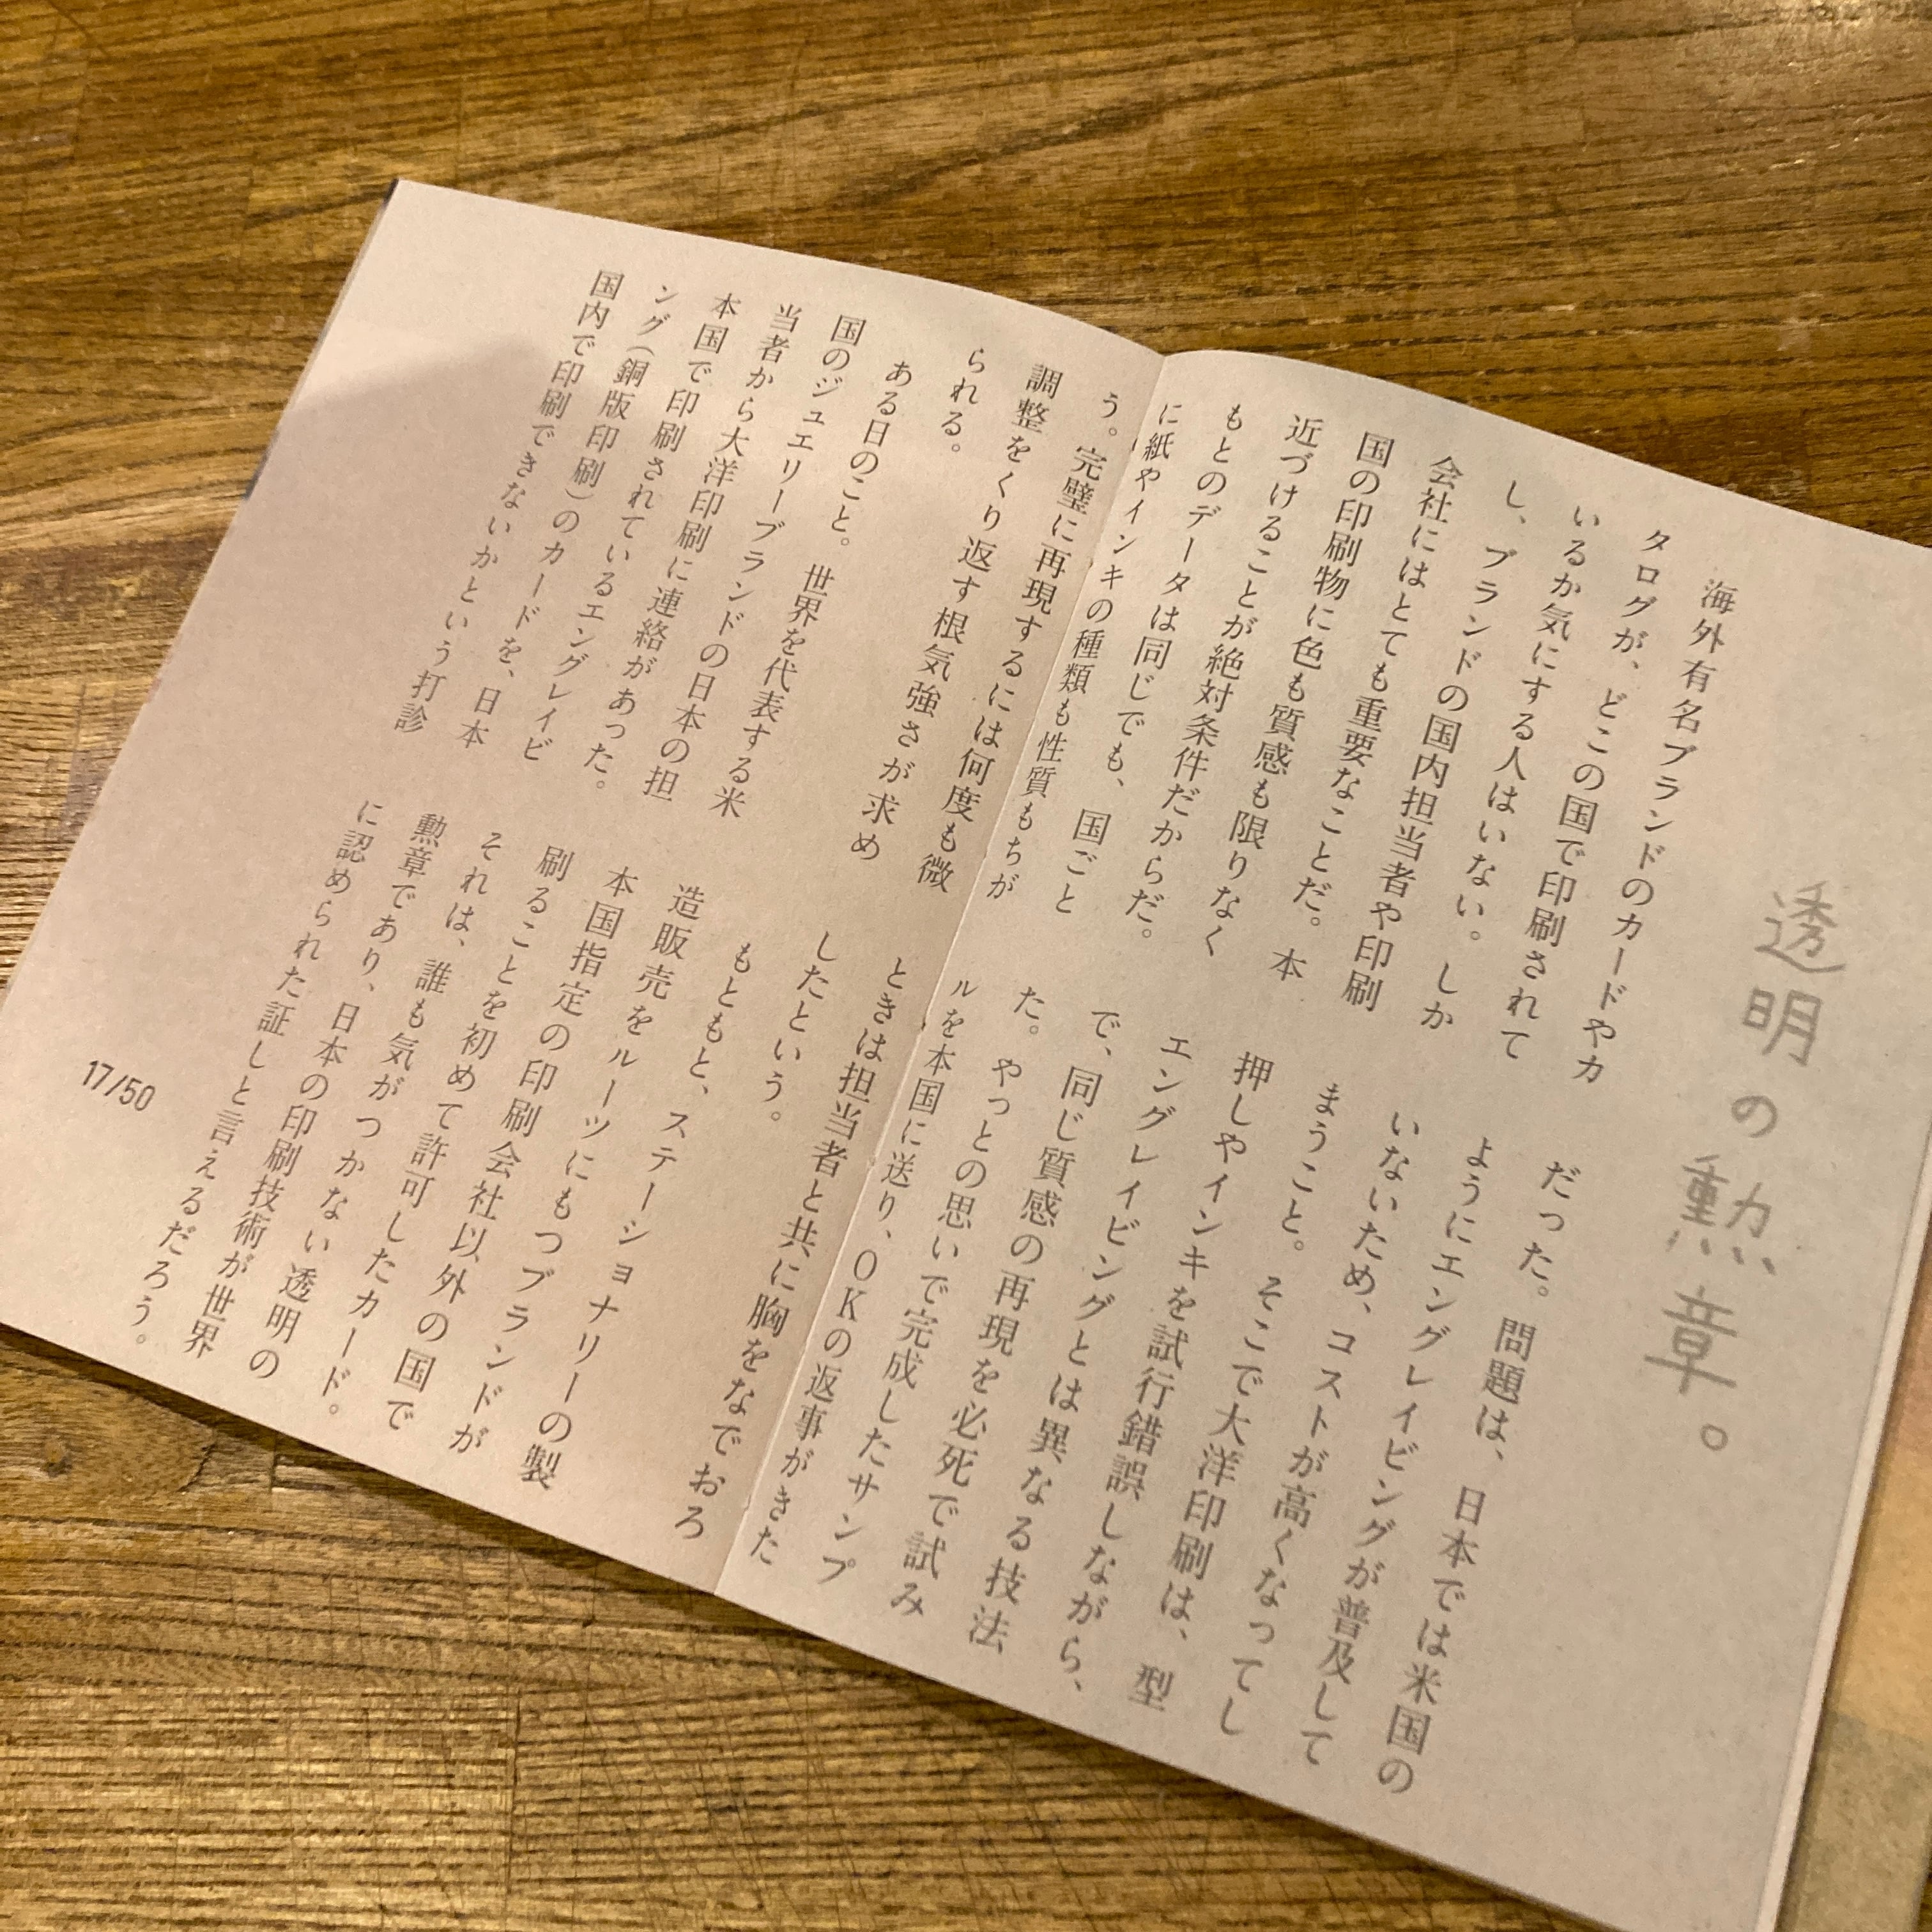 透明の勲章。
海外有名ブランドのカードやカ
タログが、どこの国で印刷されて
いるか気にする人はいない。しか
し、ブランドの国内担当者や印刷
会社にはとても重要なことだ。本
国の印刷物に色も質感も限りなく
近づけることが絶対条件だからだ。
もとのデータは同じでも、国ごと
に紙やインキの種類も性質もちが
う。完璧に再現するには何度も微
調整をくり返す根気強さが求め
られる。
ある日のこと。世界を代表する米
国のジュエリーブランドの日本の担
当者から大洋印刷に連絡があった。
本国で印刷されているエングレイビ
ング（銅版印刷）のカードを、日本
国内で印刷できないかという打診
だった。問題は、日本では米国の
ようにエングレイビングが普及して
いないため、コストが高くなってし
まうこと。そこで大洋印刷は、型
押しやインキを試行錯誤しながら、
エングレイビングとは異なる技法
で、同じ質感の再現を必死で試み
た。やっとの思いで完成したサンプ
ルを本国に送り、OKの返事がきた
ときは担当者と共に胸をなでおろ
したという。
もともと、ステーショナリーの製
造販売をルーツにもつブランドが
本国指定の印刷会社以外の国で
刷ることを初めて許可したカード。
それは、誰も気がつかない透明の
勲章であり、日本の印刷技術が世界
に認められた証しと言えるだろう。
17/50